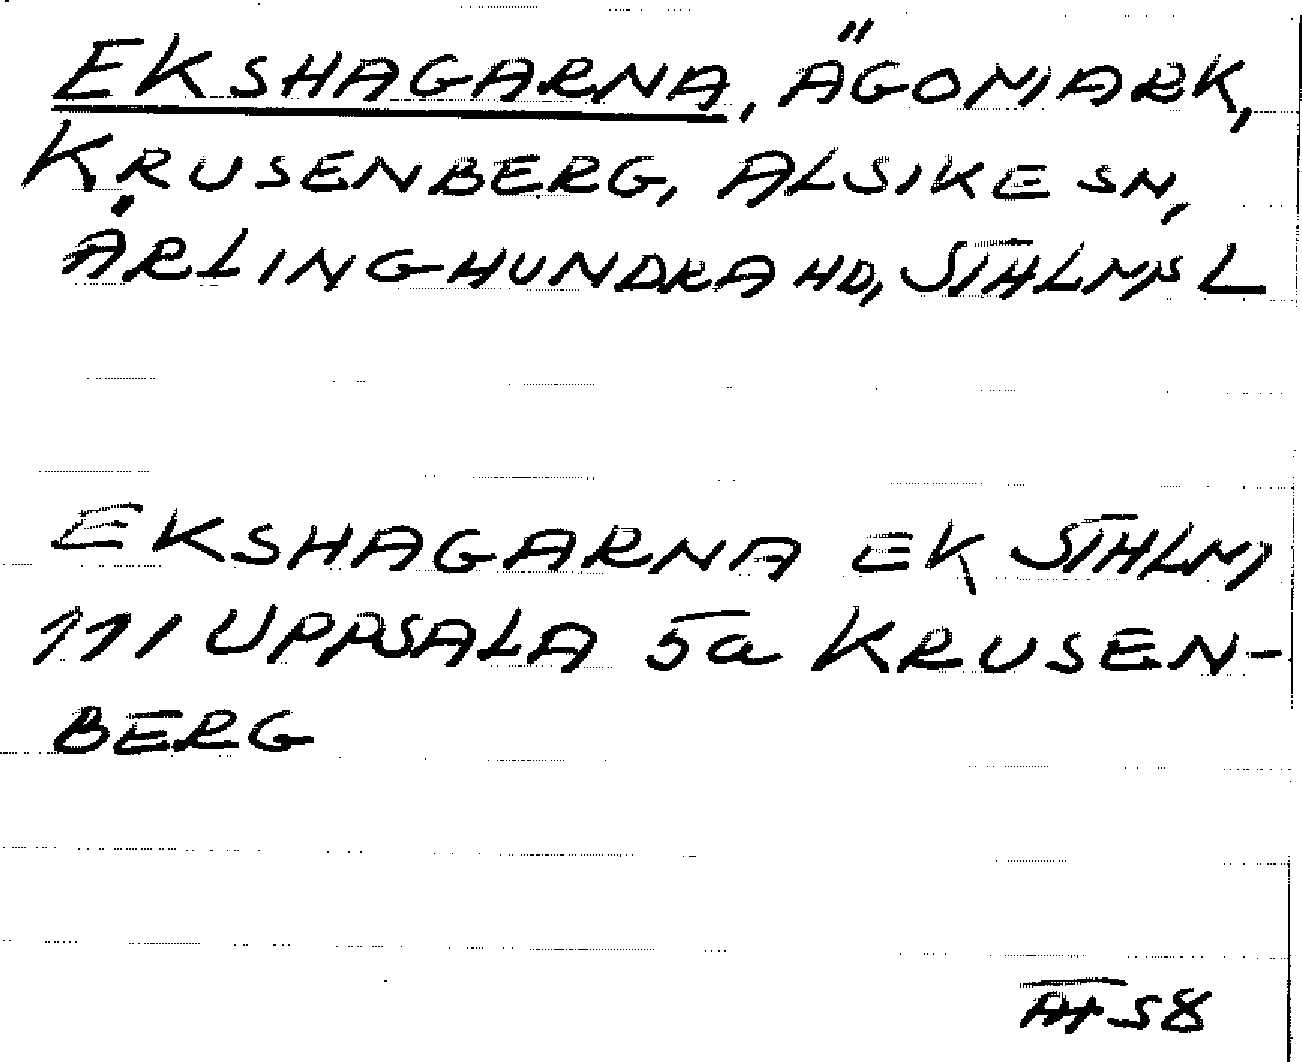 EKSHAGARNA, ÄGOMARK,
KRUSENBERG, ALSIKE SN,
ÄRLINGHUNDRA HD, STHLMS L
EKSHAGARNA EK STHLM
111 UPPSALA 5a KRUSEN-
BERG